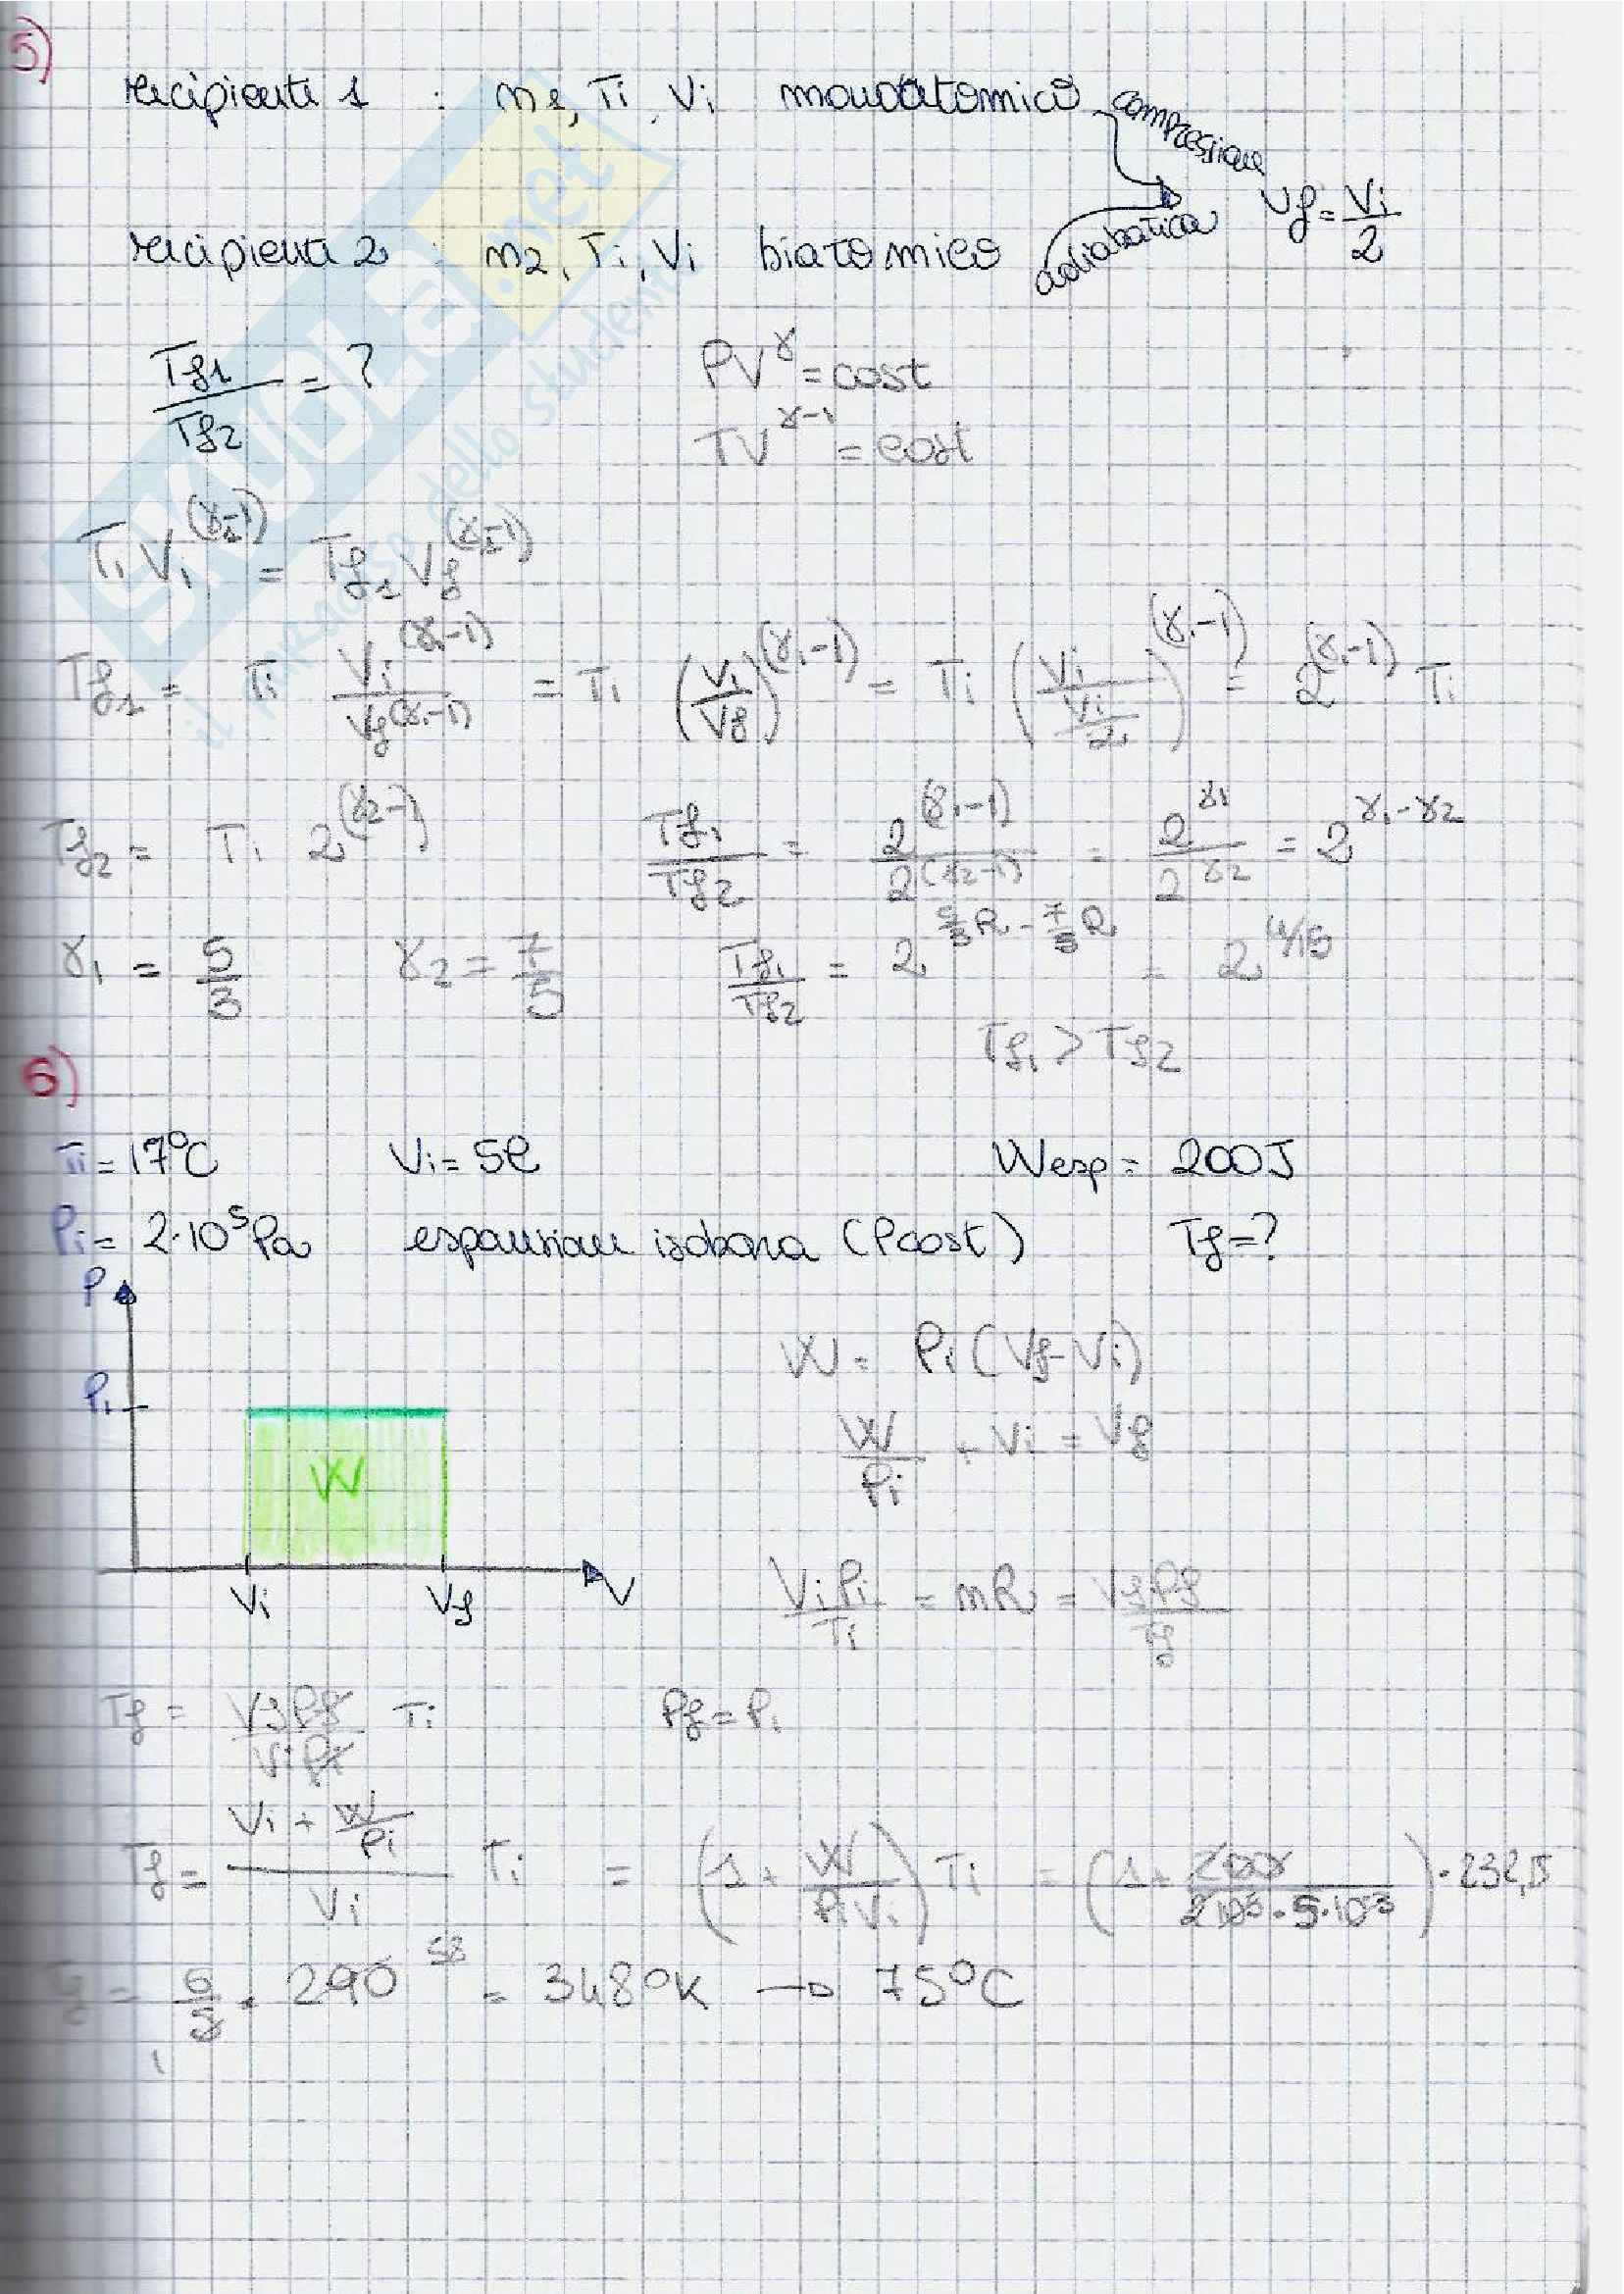 5)
recipiente 1 : n1, Ti, Vi monoatomico compressione
adiabatica Vf = Vi/2
recipiente 2 : n2, Ti, Vi biatomico
Tf1/Tf2 = ?
PV^γ = cost
TV^(γ-1) = cost
Ti Vi^(γ1-1) = Tf1 Vf^(γ1-1)
Tf1 = Ti Vi^(γ1-1)/Vf^(γ1-1) = Ti (Vi/Vf)^(γ1-1) = Ti (Vi/(Vi/2))^(γ1-1) = 2^(γ1-1) Ti
Tf2 = Ti 2^(γ2-1) Tf1/Tf2 = 2^(γ1-1)/2^(γ2-1) = 2^γ1/2^γ2 = 2^(γ1-γ2)
γ1 = 5/3 γ2 = 7/5 Tf1/Tf2 = 2^(5/3 R - 7/5 R) = 2^(4/15)
Tf1 > Tf2
6)
Ti = 17°C Vi = 5l Wesp = 200J
Pi = 2·10^5 Pa espansione isobara (Pcost) Tf = ?
P
Pi
W
Vi Vf V
W = Pi (Vf - Vi)
W/Pi + Vi = Vf
ViPi/Ti = nR = VfPf/Tf
Tf = VfPf/ViPi Ti Pf = Pi
Tf = (Vi + W/Pi)/Vi Ti = (1 + W/PiVi) Ti
Tf = 6/5 · 290 58 = 348°K → 75°C
SKUOLA.net
il paradiso dello studente